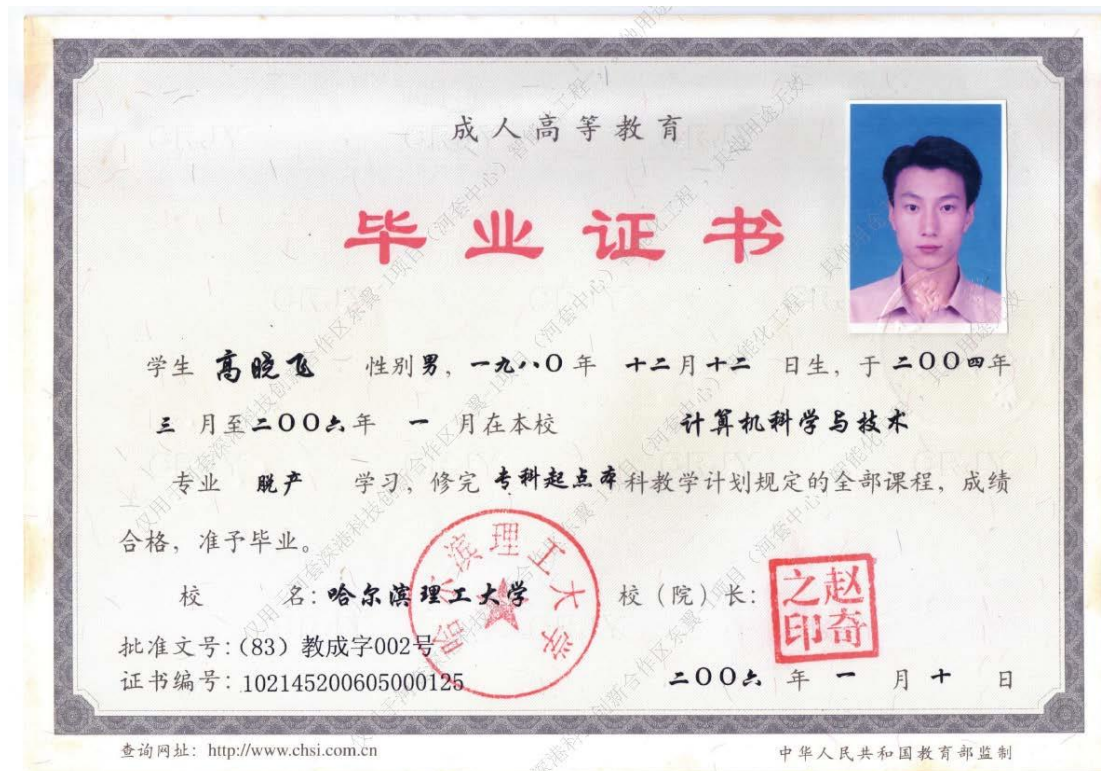 成人高等教育
毕业证书
学生 高晓飞 性别男，一九八〇年 十二月十二 日生，于二〇〇四年
三 月至二〇〇六年 一 月在本校 计算机科学与技术
专业 脱产 学习，修完 专科起点本科教学计划规定的全部课程，成绩
合格，准予毕业。
校 名：哈尔滨理工大学 校（院）长：
赵奇之印
哈尔滨理工大学
批准文号：（83）教成字002号
证书编号：102145200605000125
二〇〇六 年 一 月 十 日
查询网址：http://www.chsi.com.cn
中华人民共和国教育部监制